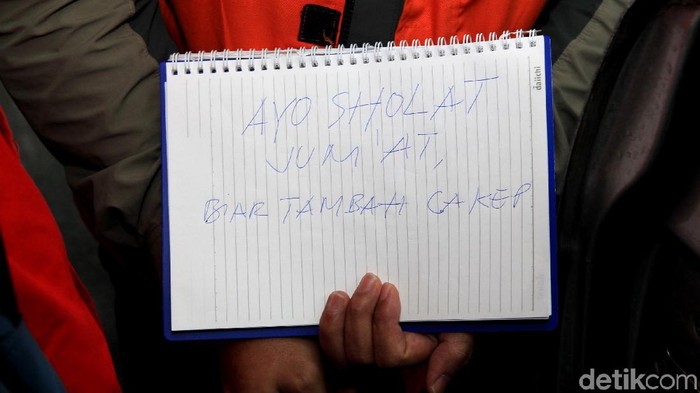 AYO SHOLAT
JUM'AT,
BIAR TAMBAH CAKEP.
daiichi
detikcom